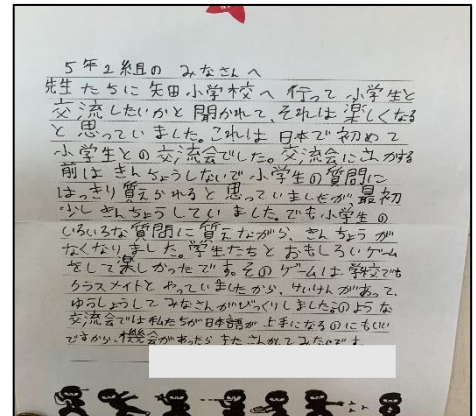 5年2組の みなさんへ
先生たちに 矢田小学校へ 行って 小学生と
交流したいかと聞かれて、それは楽しくなる
と思っていました。これは日本で初めて
小学生との交流会でした。交流会にさんかする
前は きんちょうしないで 小学生の質問に
はっきり答えられると思っていましたが、最初
少しきんちょうしていました。でも小学生の
いろいろな質問に答えながら、きんちょうが
なくなりました。学生たちと おもしろいゲーム
をして楽しかったです。そのゲームは 学校でも
クラスメイトと やっていましたから、けいけんがあって、
ゆうしょうして みなさんがびっくりしました。このような
交流会では私たちが日本語が 上手になるのにもいい
ですから、機会があったら またさんかしてみたいです